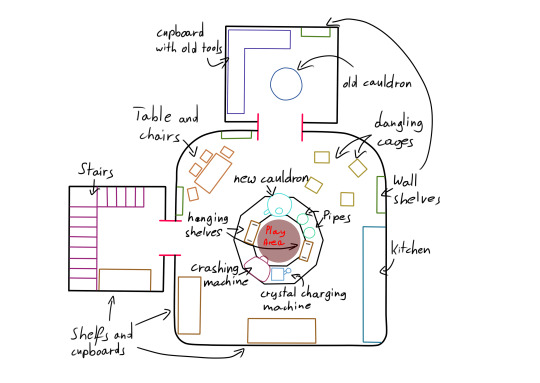 cupboard
with old tools
old cauldron
Table and
chairs
dangling
cages
Stairs
new cauldron
Wall
shelves
hanging
shelves
Pipes
Play
Area
kitchen
crashing
machine
crystal charging
machine
Shelfs and
cupboards